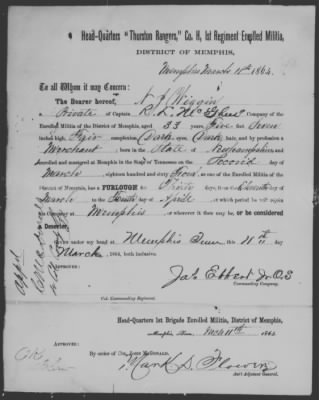 Head-Quarters "Thurston Rangers," Co. H, 1st Regiment Enrolled Militia,
DISTRICT OF MEMPHIS,
Memphis March 11th 1864.
To all Whom it may Concern:
The Bearer hereof, N. J. Wiggin
a Private of Captain Company of the
Enrolled Militia of the District of Memphis, aged 33 years Five feet Seven
inches high, Fair complexion Dark eyes, Dark hair, and by profession a
Merchant born in the State of New Hampshire and
enrolled and mustered at Memphis in the State of Tennessee on the Second day of
March eighteen hundred and sixty Four, as one of the Enrolled Militia of the
District of Memphis, has FURLOUGH for Thirty days, from the
March to the Tenth day of April at which period he will rejoin
his Company at Memphis or wherever it then may be, or be considered
a Deserter.
Given under my hand at Memphis Tenn this 11th day
March, 1864, both inclusive.
APPROVED:
Jas Ebbert Jr O.S
Commanding Company.
Col. Commanding Regiment.
Head-Quarters 1st Brigade Enrolled Militia, District of Memphis,
Memphis, Tenn. Mch 11th 1864
APPROVED:
By order of Col. John McDonald.
Frank D.
Ass't Adjutant General.